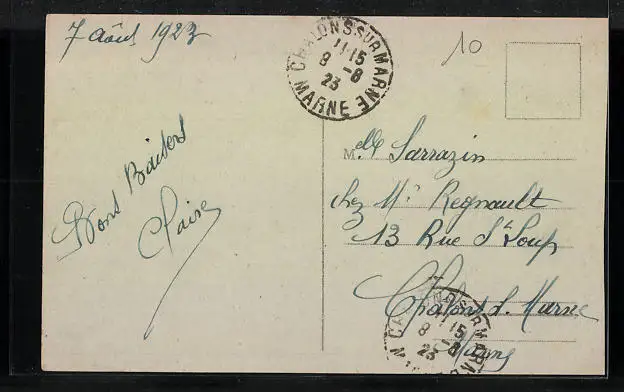 7 Août 1923
CHALONS-SUR-MARNE
11-15
8 -8
23
MARNE
10
Bons Baisers
Claire
Melle Sarrazin
chez Mr Regnault
13 Rue St Loup
Chalons s. Marne
Marne
CHALONS-SUR-MARNE
11-15
8 -8
23